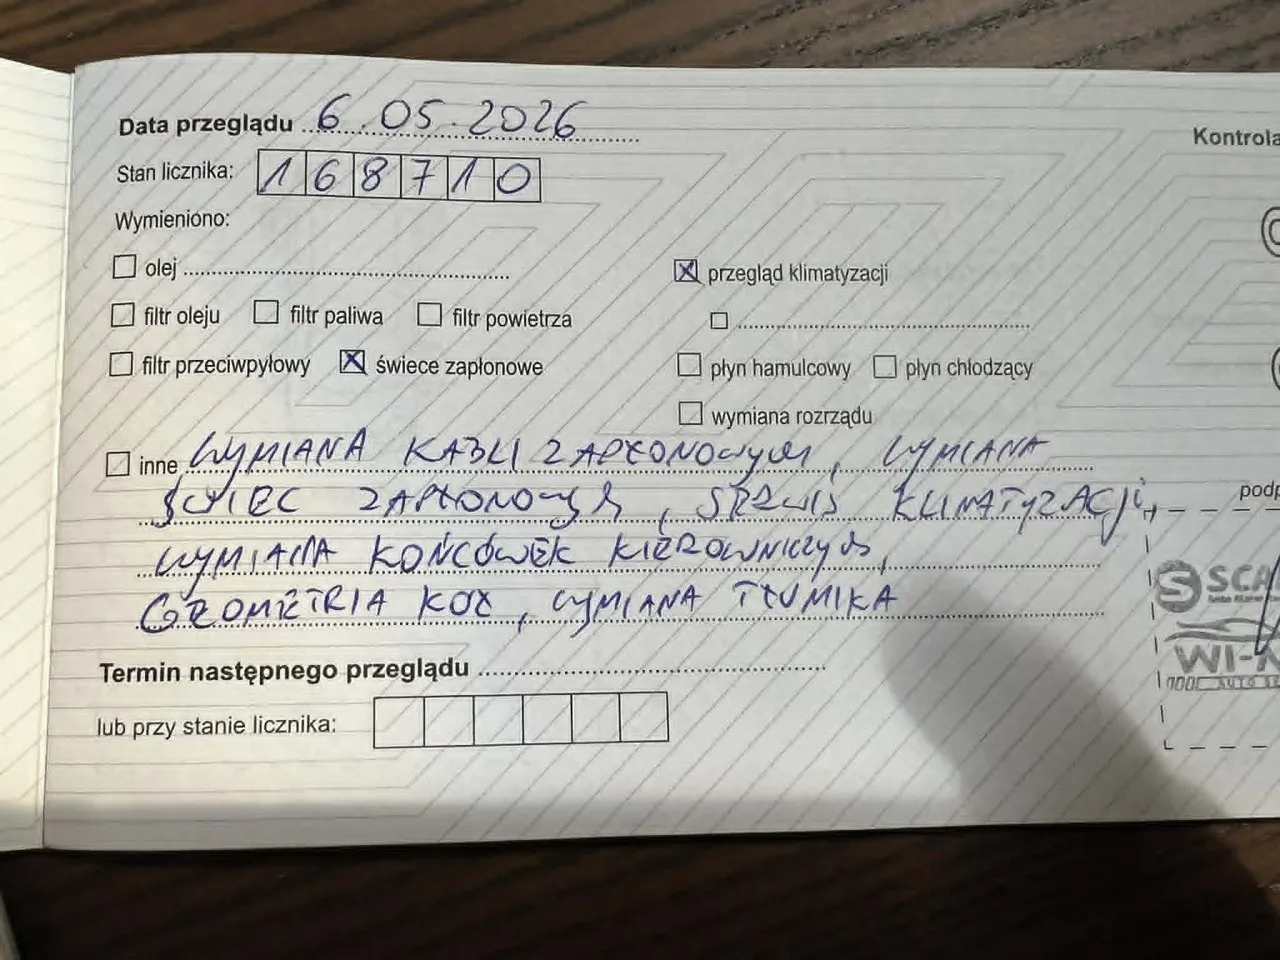 Data przeglądu 6.05.2026
Kontrola
Stan licznika: 168710
Wymieniono:
olej
przegląd klimatyzacji
filtr oleju filtr paliwa filtr powietrza
filtr przeciwpyłowy świece zapłonowe
płyn hamulcowy płyn chłodzący
wymiana rozrządu
inne WYMIANA KABLI ZAPŁONOWYCH, WYMIANA
ŚWIEC ZAPŁONOWYCH, SERWIS KLIMATYZACJI,
podp
WYMIANA KOŃCÓWEK KIEROWNICZYCH,
GEOMETRIA KÓŁ, WYMIANA TŁUMIKA
SCA
WI-
Termin następnego przeglądu
lub przy stanie licznika: